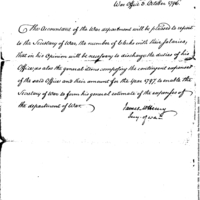 War Office 8 October 1796.
The Accountant of the War department will be pleased to report
to the Secretary of War, the number of Clerks with their salaries,
that in his Opinion will be necessary to discharge the duties of his
Office, as also the general items composing the contingent expences
of the said Office and their amount for the year 1797, to enable the
Secretary of War to form his general estimate of the expences of
the department of War.
James McHenry
Secy of war